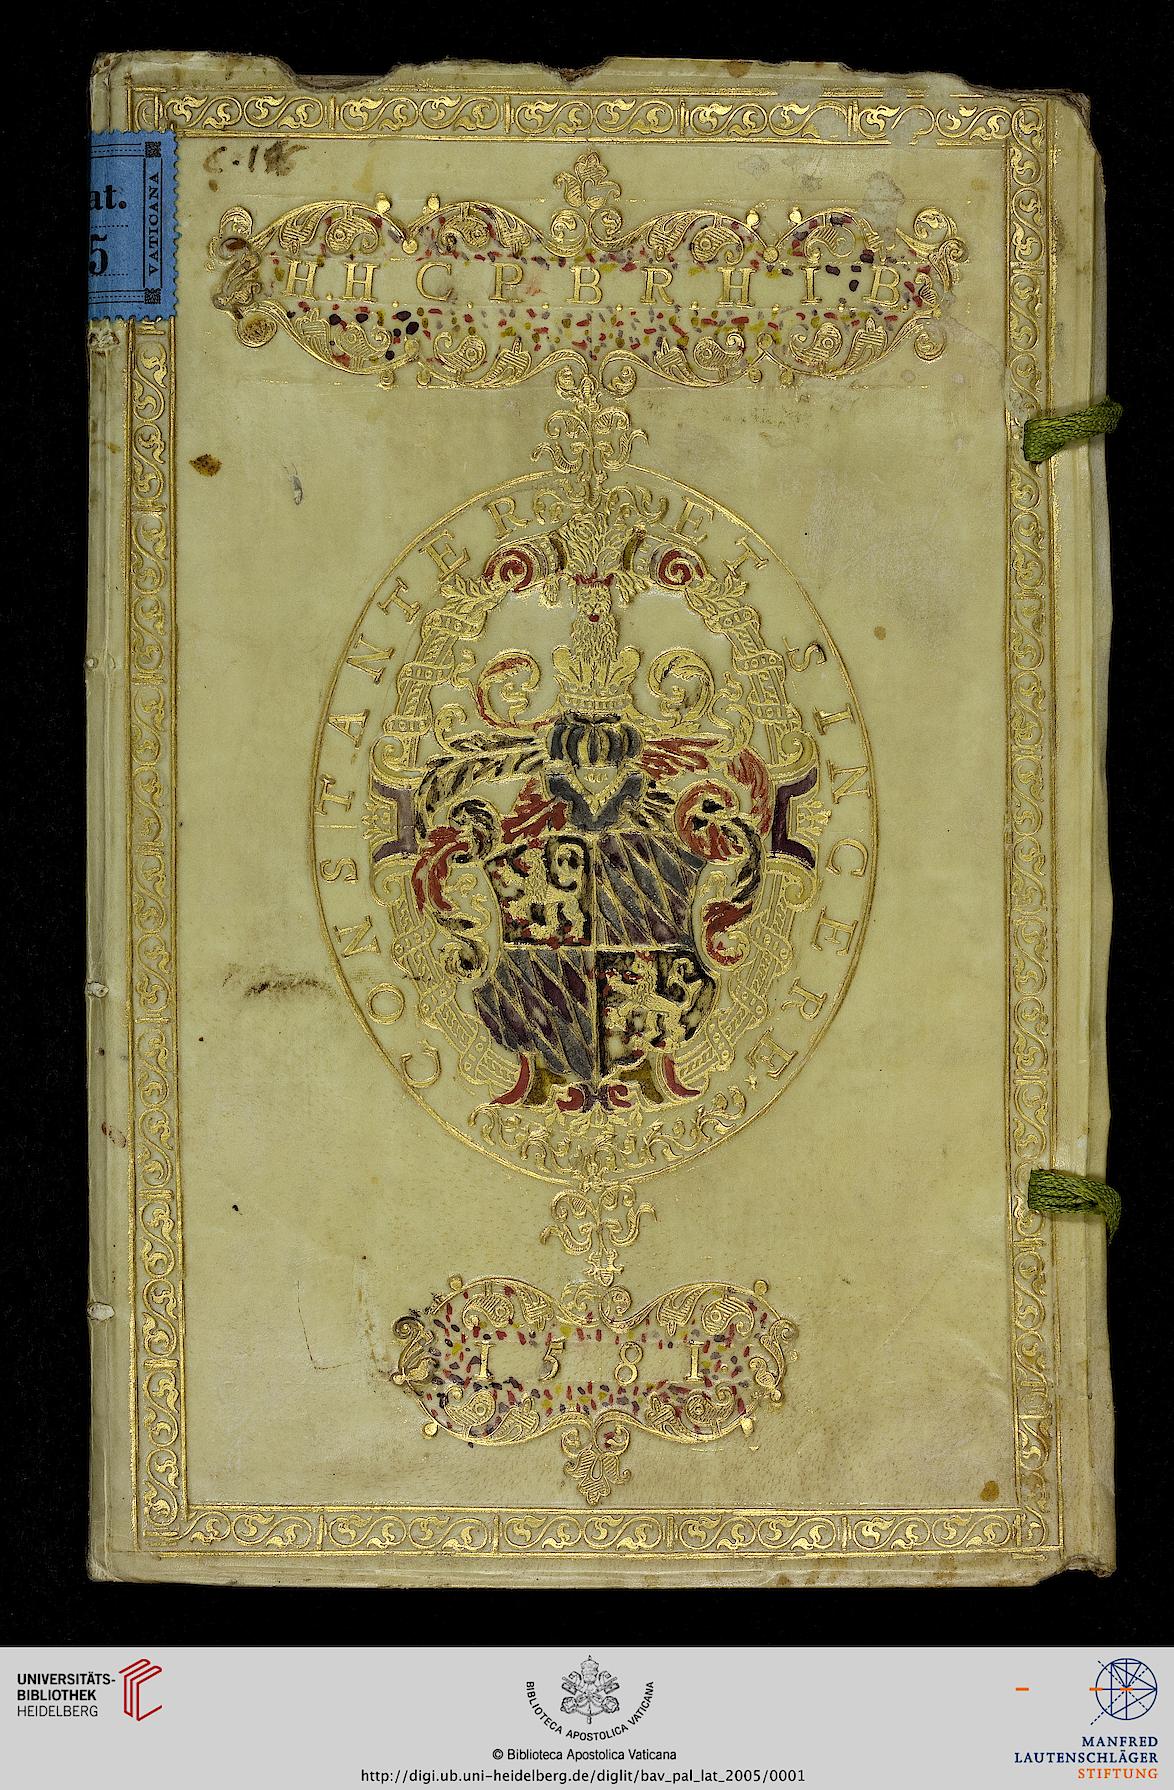 C. 1
at.
5
VATICANA
H. H. C. P. B. R. H. I. B.
CONSTANTER ET SINCERE
1581.
UNIVERSITÄTS-
BIBLIOTHEK
HEIDELBERG
BIBLIOTECA APOSTOLICA VATICANA
© Biblioteca Apostolica Vaticana
http://digi.ub.uni-heidelberg.de/diglit/bav_pal_lat_2005/0001
MANFRED
LAUTENSCHLÄGER
STIFTUNG